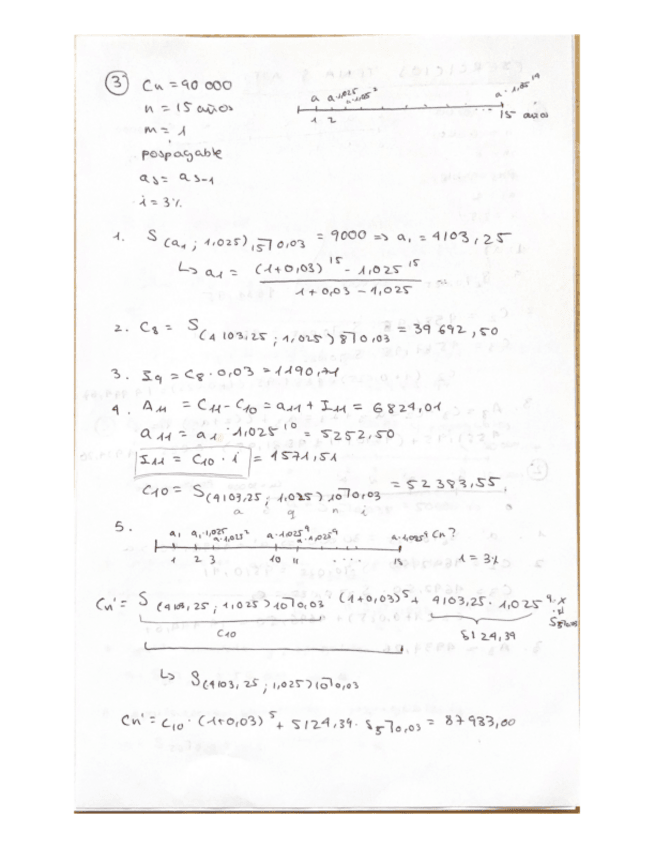 3 Cn = 90 000
n = 15 años
m = 1
pospagable
as = as-1
i = 3%
a a·1,025 a·1,025² a·1,025¹⁴
1 2 15 años
1. S(a1 ; 1,025) 15⌉0,03 = 9000 => a1 = 4103,25
↳ a1 = (1+0,03)¹⁵ - 1,025¹⁵
1+0,03 - 1,025
2. C8 = S(4103,25 ; 1,025) 8⌉0,03 = 39 692,50
3. I9 = C8 · 0,03 = 1190,71
4. A11 = C11 - C10 = a11 + I11 = 6824,01
a11 = a1 · 1,025¹⁰ = 5252,50
I11 = C10 · i = 1571,51
C10 = S(4103,25 ; 1,025) 10⌉0,03 = 52383,55
a q n i
5.
a1 a1·1,025 a·1,025² a·1,025⁹ a·1,025⁹ a·1,025⁹ Cn?
1 2 3 10 11 15 i = 3%
Cn' = S(4103,25 ; 1,025) 10⌉0,03 · (1+0,03)⁵ + 4103,25 · 1,025⁹ · S5⌉0,03
C10 5124,39
↳ S(4103,25 ; 1,025) 10⌉0,03
Cn' = C10 · (1+0,03)⁵ + 5124,39 · S5⌉0,03 = 87933,00